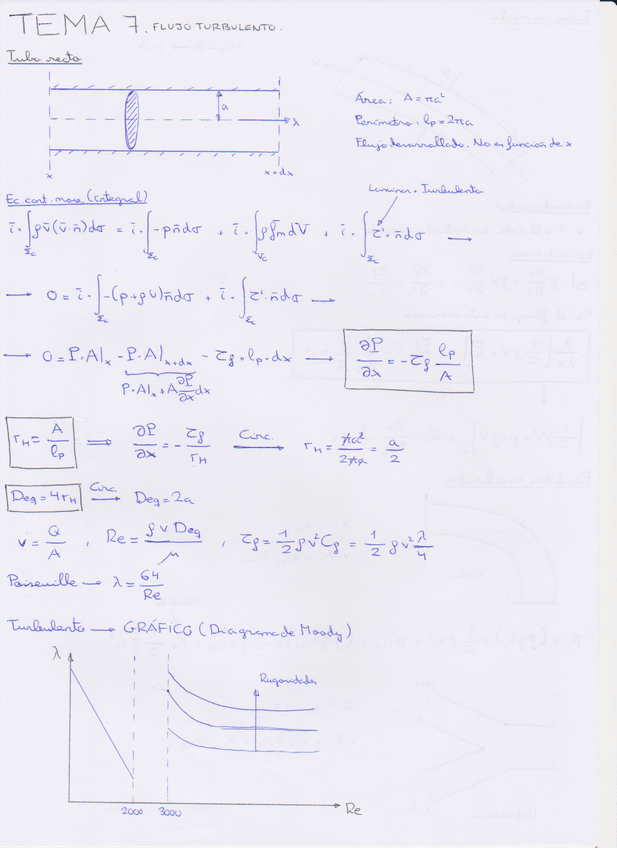 TEMA 7. FLUJO TURBULENTO.
Tubo recto
a
λ
x
x+dx
Área: A = πa²
Perímetro: lp = 2πa
Flujo desarrollado. No es función de x
Ec. cont. mov. (integral)
Laminar + Turbulento
ī·∫_Σc ρv̄(v̄·n̄)dσ = ī·∫_Σc -pn̄dσ + ī·∫_Vc ρf̄m dV + ī·∫_Σc τ'·n̄dσ →
→ 0 = ī·∫_Σc -(p+ρU)n̄dσ + ī·∫_Σc τ'·n̄dσ →
→ 0 = P·A|x - P·A|x+dx - τf·lp·dx → ∂P/∂x = -τf lp/A
P·A|x + A ∂P/∂x dx
rH = A/lp ⟹ ∂P/∂x = -τf/rH Circ. → rH = πa²/2πa = a/2
Deq = 4rH Circ. → Deq = 2a
v = Q/A , Re = ρvDeq/μ , τf = 1/2 ρv²Cf = 1/2 ρv² λ/4
Poiseuille → λ = 64/Re
Turbulento → GRÁFICO (Diagrama de Moody)
λ
Rugosidades
2000
3000
Re